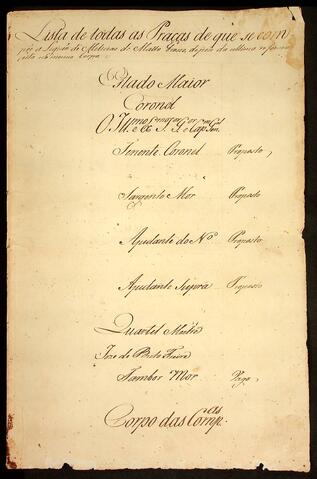 Lista de todas as Praças de que se com
põe a Legião de Milicias de Matto Grosso, depois da ultima refórma
feita no mesmo Corpo.
Estado Maior
Coronel
O Ill.mo e Ex.mo S. G. e Cap.am Gen.
Tenente Coronel Proposto,
Sargento Mor Proposto
Ajudante do No Proposto
Ajudante Supra Proposto
Quartel Mestre
Joze de Brito Freire
Tambor Mor Pago,
Corpo das Comp.as